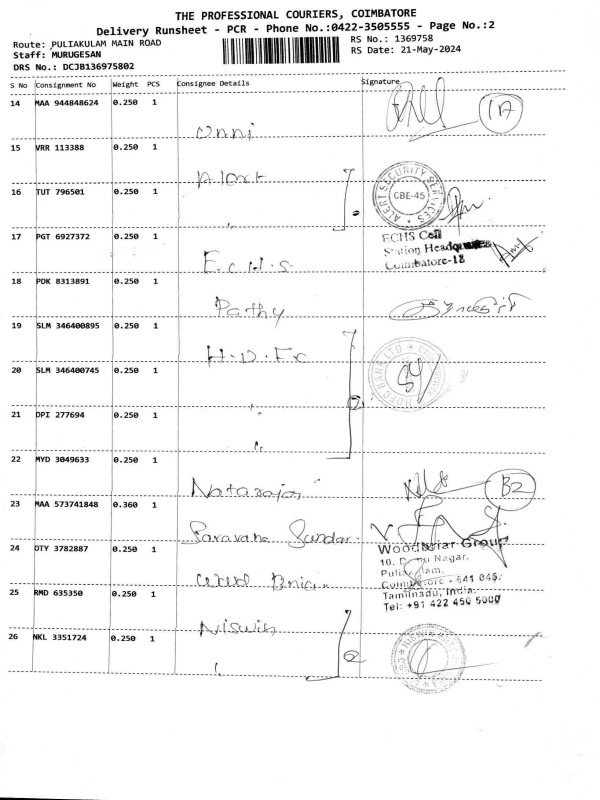 THE PROFESSIONAL COURIERS, COIMBATORE
Delivery Runsheet - PCR - Phone No.:0422-3505555 - Page No.:2
Route: PULIAKULAM MAIN ROAD
Staff: MURUGESAN
DRS No.: DCJB136975802
RS No.: 1369758
RS Date: 21-May-2024
S No Consignment No Weight PCS Consignee Details Signature
14 MAA 944848624 0.250 1
Unni
1A
15 VRR 113388 0.250 1
Alert
16 TUT 796501 0.250 1
"
ALERT SECURITY SERVICES
CBE-45
17 PGT 6927372 0.250 1
E.C.H.S
ECHS Cell
Station Headquarters
Coimbatore-18
18 PDK 8313891 0.250 1
Pathy
19 SLM 346400895 0.250 1
H.D.Fc
20 SLM 346400745 0.250 1
"
HDFC BANK LTD
21 DPI 277694 0.250 1
"
22 MYD 3049633 0.250 1
Natarajan
B2
23 MAA 573741848 0.360 1
Saravana Sundar
24 OTY 3782887 0.250 1
Woodbriar Group
Nagar,
Coimbatore - 641 045.
Tamilnadu, India.
Tel: +91 422 450 5000
25 RMD 635350 0.250 1
Niswin
26 NKL 3351724 0.250 1
"
2